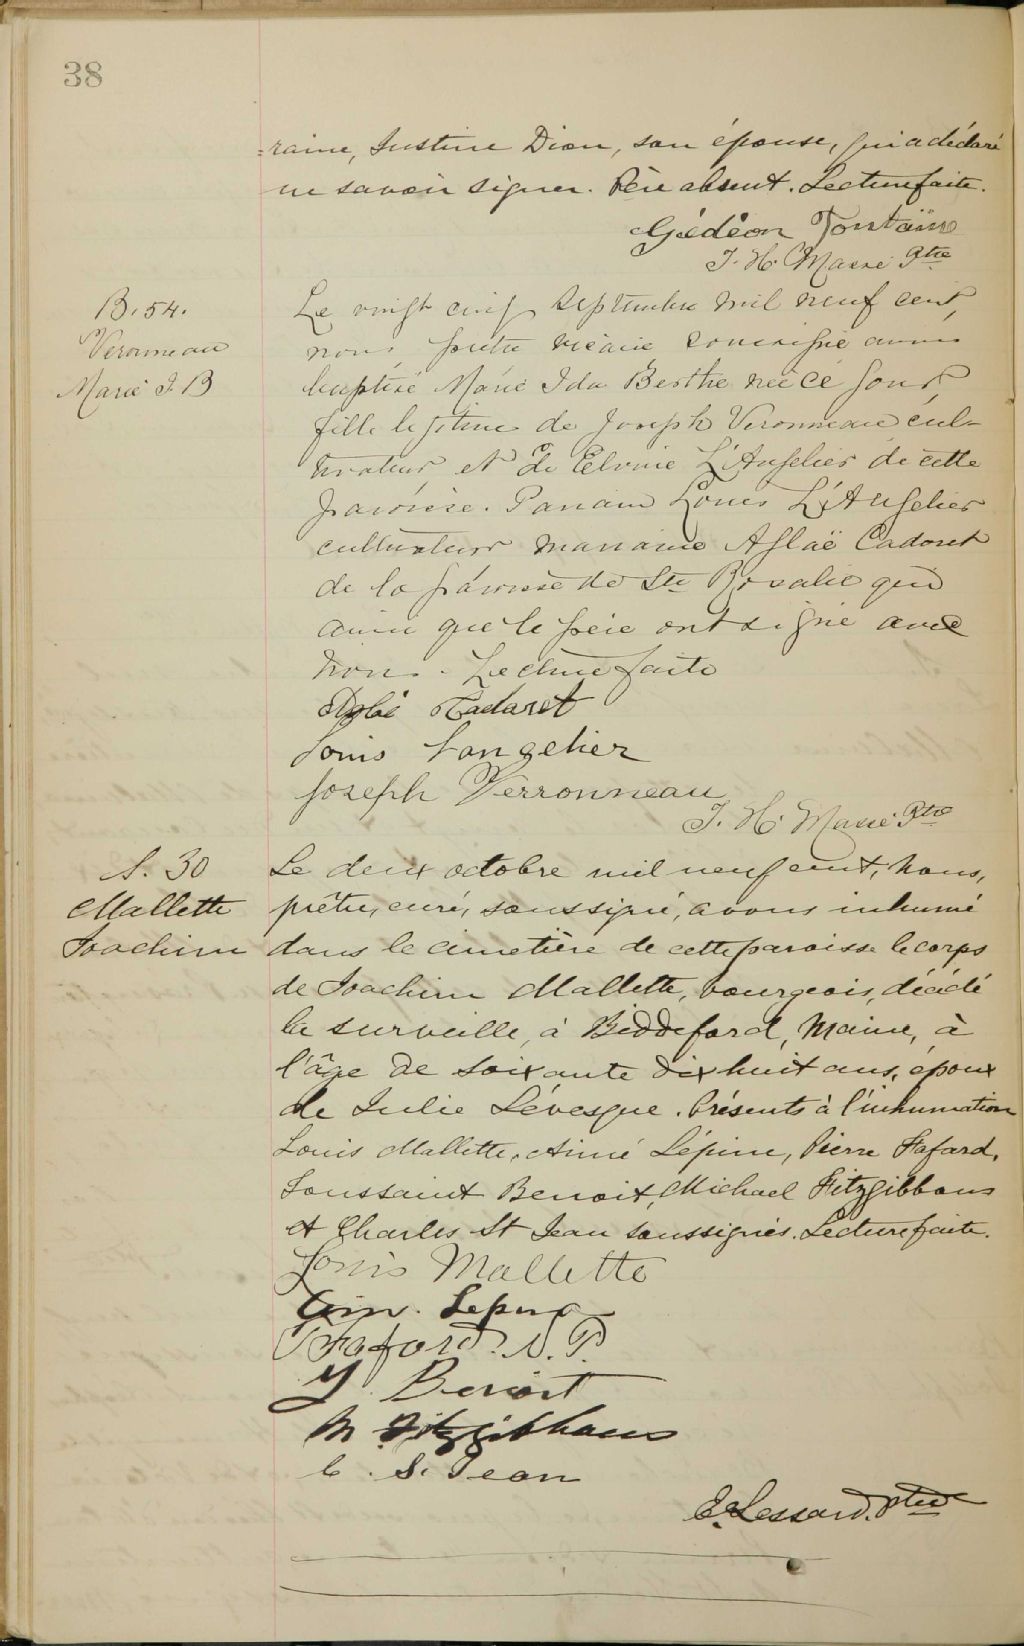 38
=raine, Justine Dion, son épouse, qui a déclaré
ne savoir signer. Père absent. Lecture faite.
Gédéon Fontaine
J. H. Massé Ptre
B. 54.
Veronneau
Marie I. B
Le vingt cinq Septembre mil neuf cent,
nous prêtre vicaire soussigné avons
baptisé Marie Ida Berthe née ce jour
fille legitime de Joseph Veronneau cul-
tivateur et de Elvine L'Angelier de cette
paroisse. Parrain Louis L'Angelier
cultivateur marraine Aglaë Cadoret
de la paroisse de Ste Rosalie qui
ainsi que le père ont signé avec
nous. Lecture faite
Cadaret
Louis Langelier
Joseph Verronneau
J. H. Massé Ptre
S. 30
Mallette
Joachim
Le deux octobre mil neuf cent, nous,
prêtre, curé, soussigné, avons inhumé
dans le cimetière de cette paroisse le corps
de Joachim Mallette, bourgeois, décédé
la surveille, à Biddeford, Maine, à
l'âge de soixante dix huit ans, époux
de Julie Lévesque. Présents à l'inhumation
Louis Mallette, Aimé Lépine, Pierre Fafard,
Toussaint Benoit, Michael Fitzgibbons
et Charles St Jean soussignés. Lecture faite.
Louis Mallette
Lepine
P Fafard. N. P.
Benoit
M. Fitzgibbons
C. S. Jean
E. Lessard. Ptre